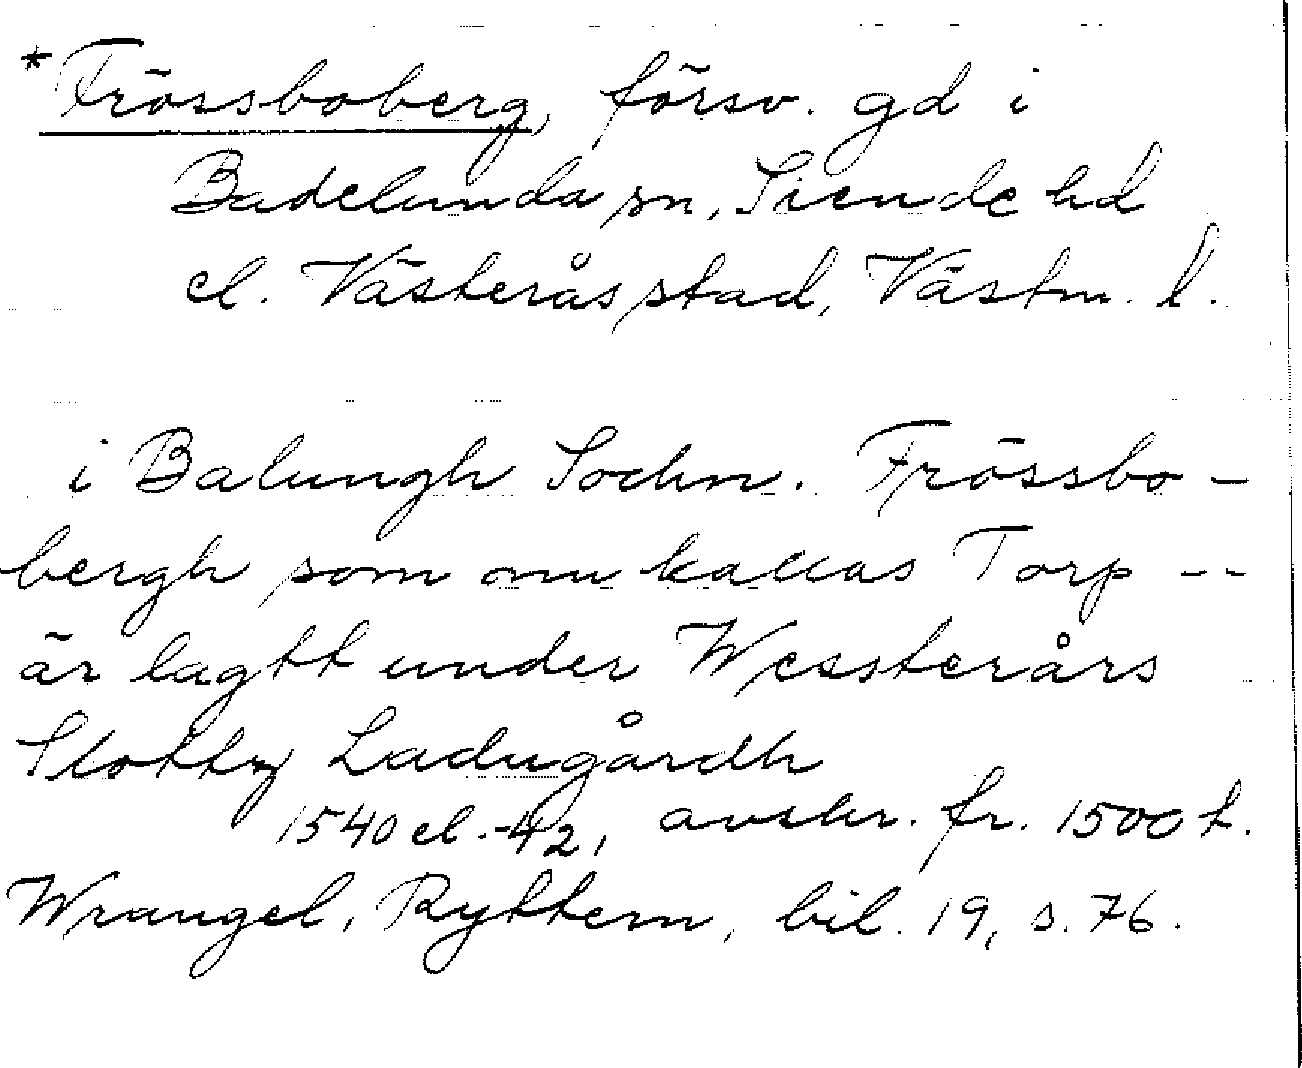 *Frössboberg, försv. gd i
Badelunda sn, Siende hd
el. Västerås stad, Västm. l.
i Balungh Sochn. Frössbo-
bergh som nu kallas Torp --
är lagtt under Wessterårs
Slottz Ladugårdh
1540 el. -42, avskr. fr. 1500 t.
Wrangel, Ryttern, bil. 19, s. 76.